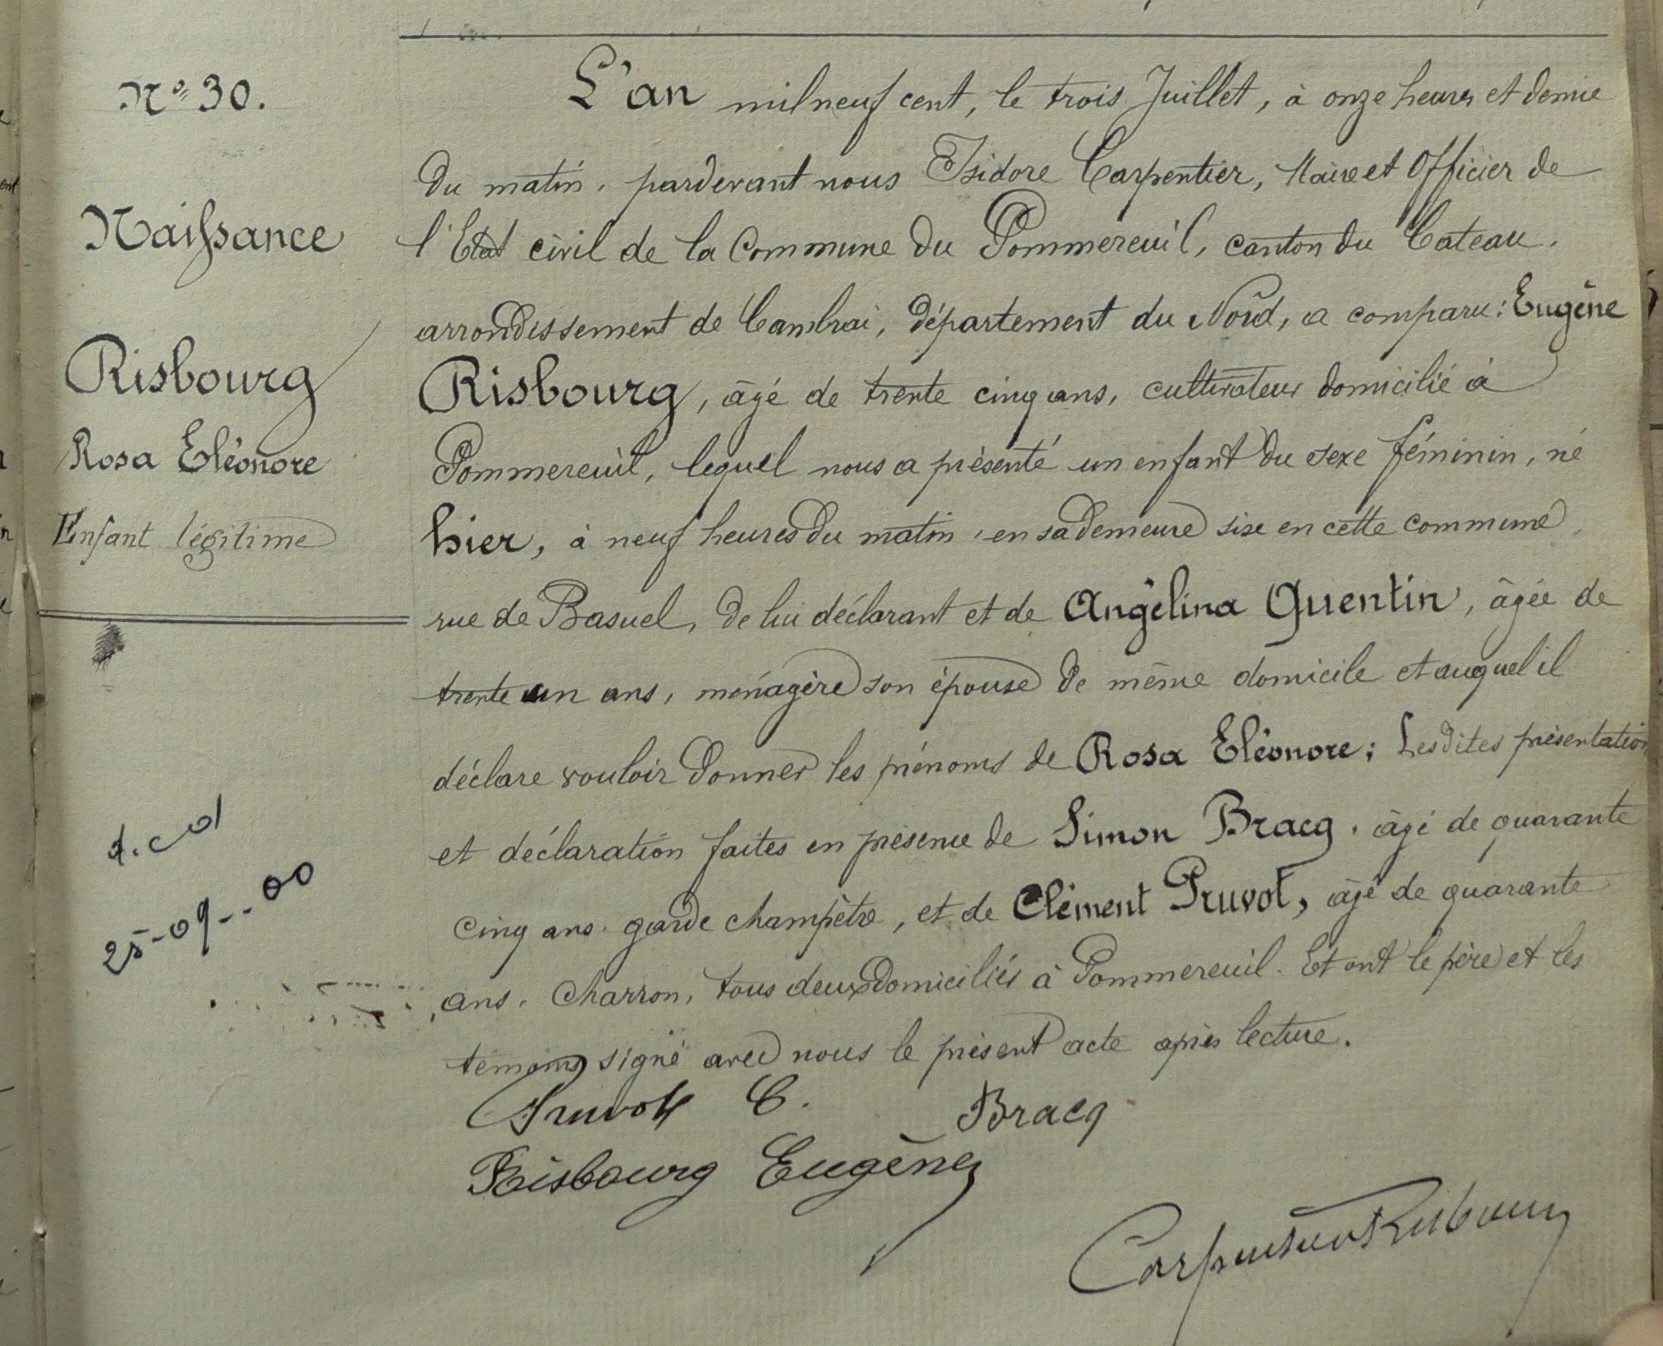 N° 30.
Naissance
Risbourg
Rosa Eléonore
Enfant légitime
L'an mil neuf cent, le trois Juillet, à onze heures et demie
du matin, pardevant nous Isidore Carpentier, Maire et Officier de
l'Etat civil de la Commune du Pommereuil, canton du Cateau,
arrondissement de Cambrai, département du Nord, a comparu : Eugène
Risbourg, âgé de trente cinq ans, cultivateur domicilié à
Pommereuil, lequel nous a présenté un enfant du sexe féminin, né
hier, à neuf heures du matin, en sa demeure sise en cette commune,
rue de Basuel, de lui déclarant et de Angélina Quentin, âgée de
trente un ans, ménagère son épouse de même domicile et auquel il
déclare vouloir donner les prénoms de Rosa Eléonore ; Lesdites présentation
et déclaration faites en présence de Simon Bracq, âgé de quarante
cinq ans, garde champêtre, et de Clément Pruvot, âgé de quarante
ans, Charron, tous deux domiciliés à Pommereuil. Et ont le père et les
témoins signé avec nous le présent acte après lecture.
25-09--00
Pruvot C. Bracq
Risbourg Eugène
Carpentier Risbourg